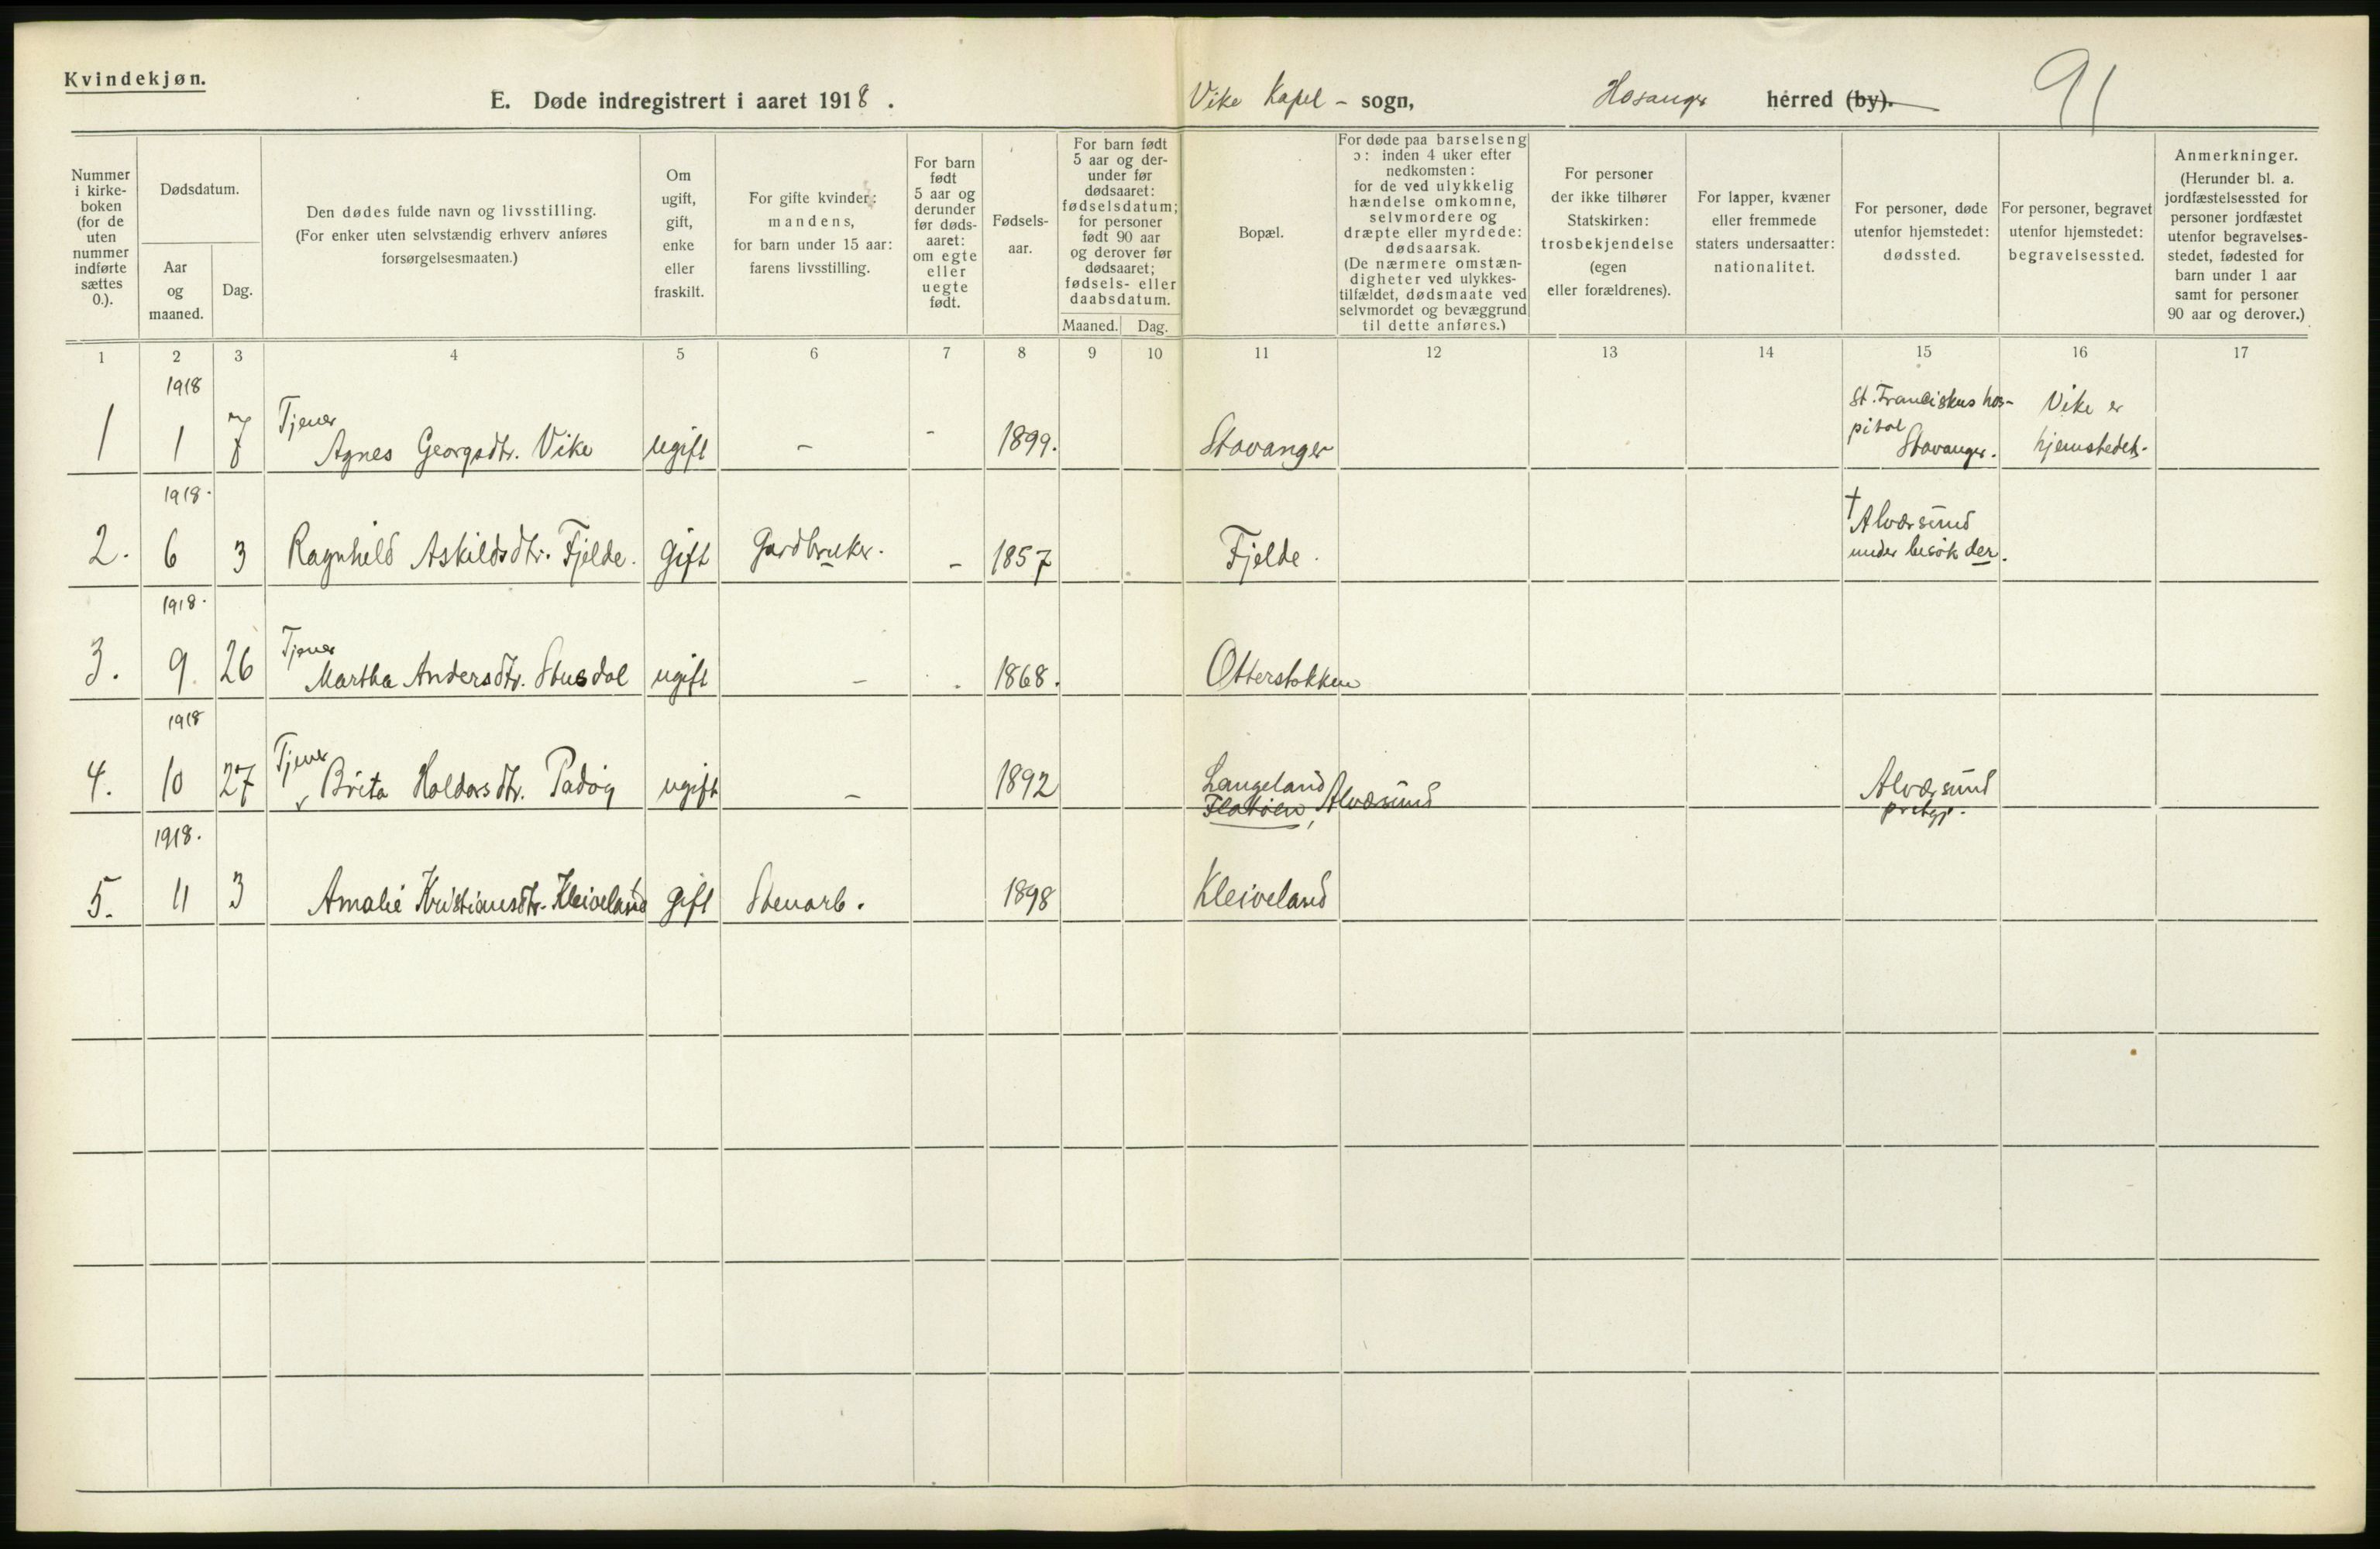 Kvindekjøn.
E. Døde indregistrert i aaret 1918.
Vike Kapel - sogn, Hosanger herred (by).
91
Nummer
i kirke-
boken
(for de
uten
nummer
indførte
sættes
0.).
Dødsdatum.
Aar
og
maaned.
Dag.
Den dødes fulde navn og livsstilling.
(For enker uten selvstændig erhverv anføres
forsørgelsesmaaten.)
Om
ugift,
gift,
enke
eller
fraskilt.
For gifte kvinder:
mandens,
for barn under 15 aar:
farens livsstilling.
For barn
født
5 aar og
derunder
før døds-
aaret:
om egte
eller
uegte
født.
Fødsels-
aar.
For barn født
5 aar og der-
under før
dødsaaret:
fødselsdatum;
for personer
født 90 aar
og derover før
dødsaaret;
fødsels- eller
daabsdatum.
Maaned. Dag.
Bopæl.
For døde paa barselseng
ɔ: inden 4 uker efter
nedkomsten:
for de ved ulykkelig
hændelse omkomne,
selvmordere og
dræpte eller myrdede:
dødsaarsak.
(De nærmere omstæn-
digheter ved ulykkes-
tilfældet, dødsmaate ved
selvmordet og bevæggrund
til dette anføres.)
For personer
der ikke tilhører
Statskirken:
trosbekjendelse
(egen
eller forældrenes).
For lapper, kvæner
eller fremmede
staters undersaatter:
nationalitet.
For personer, døde
utenfor hjemstedet:
dødssted.
For personer, begravet
utenfor hjemstedet:
begravelsessted.
Anmerkninger.
(Herunder bl. a.
jordfæstelsessted for
personer jordfæstet
utenfor begravelses-
stedet, fødested for
barn under 1 aar
samt for personer
90 aar og derover.)
1 2 3 4 5 6 7 8 9 10 11 12 13 14 15 16 17
1918
Tjener
St. Franciskus hos-
pital
Stavanger.
Vike er
hjemstedet.
1 1 7 Agnes Georgsdtr. Vike ugift - - 1899. Stavanger
1918.
† Alværsund
under besøk der.
2. 6 3 Ragnhild Askildsdtr. Fjelde. gift Gardbruker. - 1857 Fjelde.
1918.
Tjener
3. 9. 26 Martha Andersdtr. Stusdal ugift - . 1868. Otterstokken
1918
Tjener
Langeland
4. 10 27 Brita Haldorsdtr. Padøy ugift - 1892 Flatøen, Alværsund Alværsund
prstgj.
1918.
5. 11 3 Amalie Kristiansdtr. Kleiveland gift Stenarb. 1898 Kleiveland